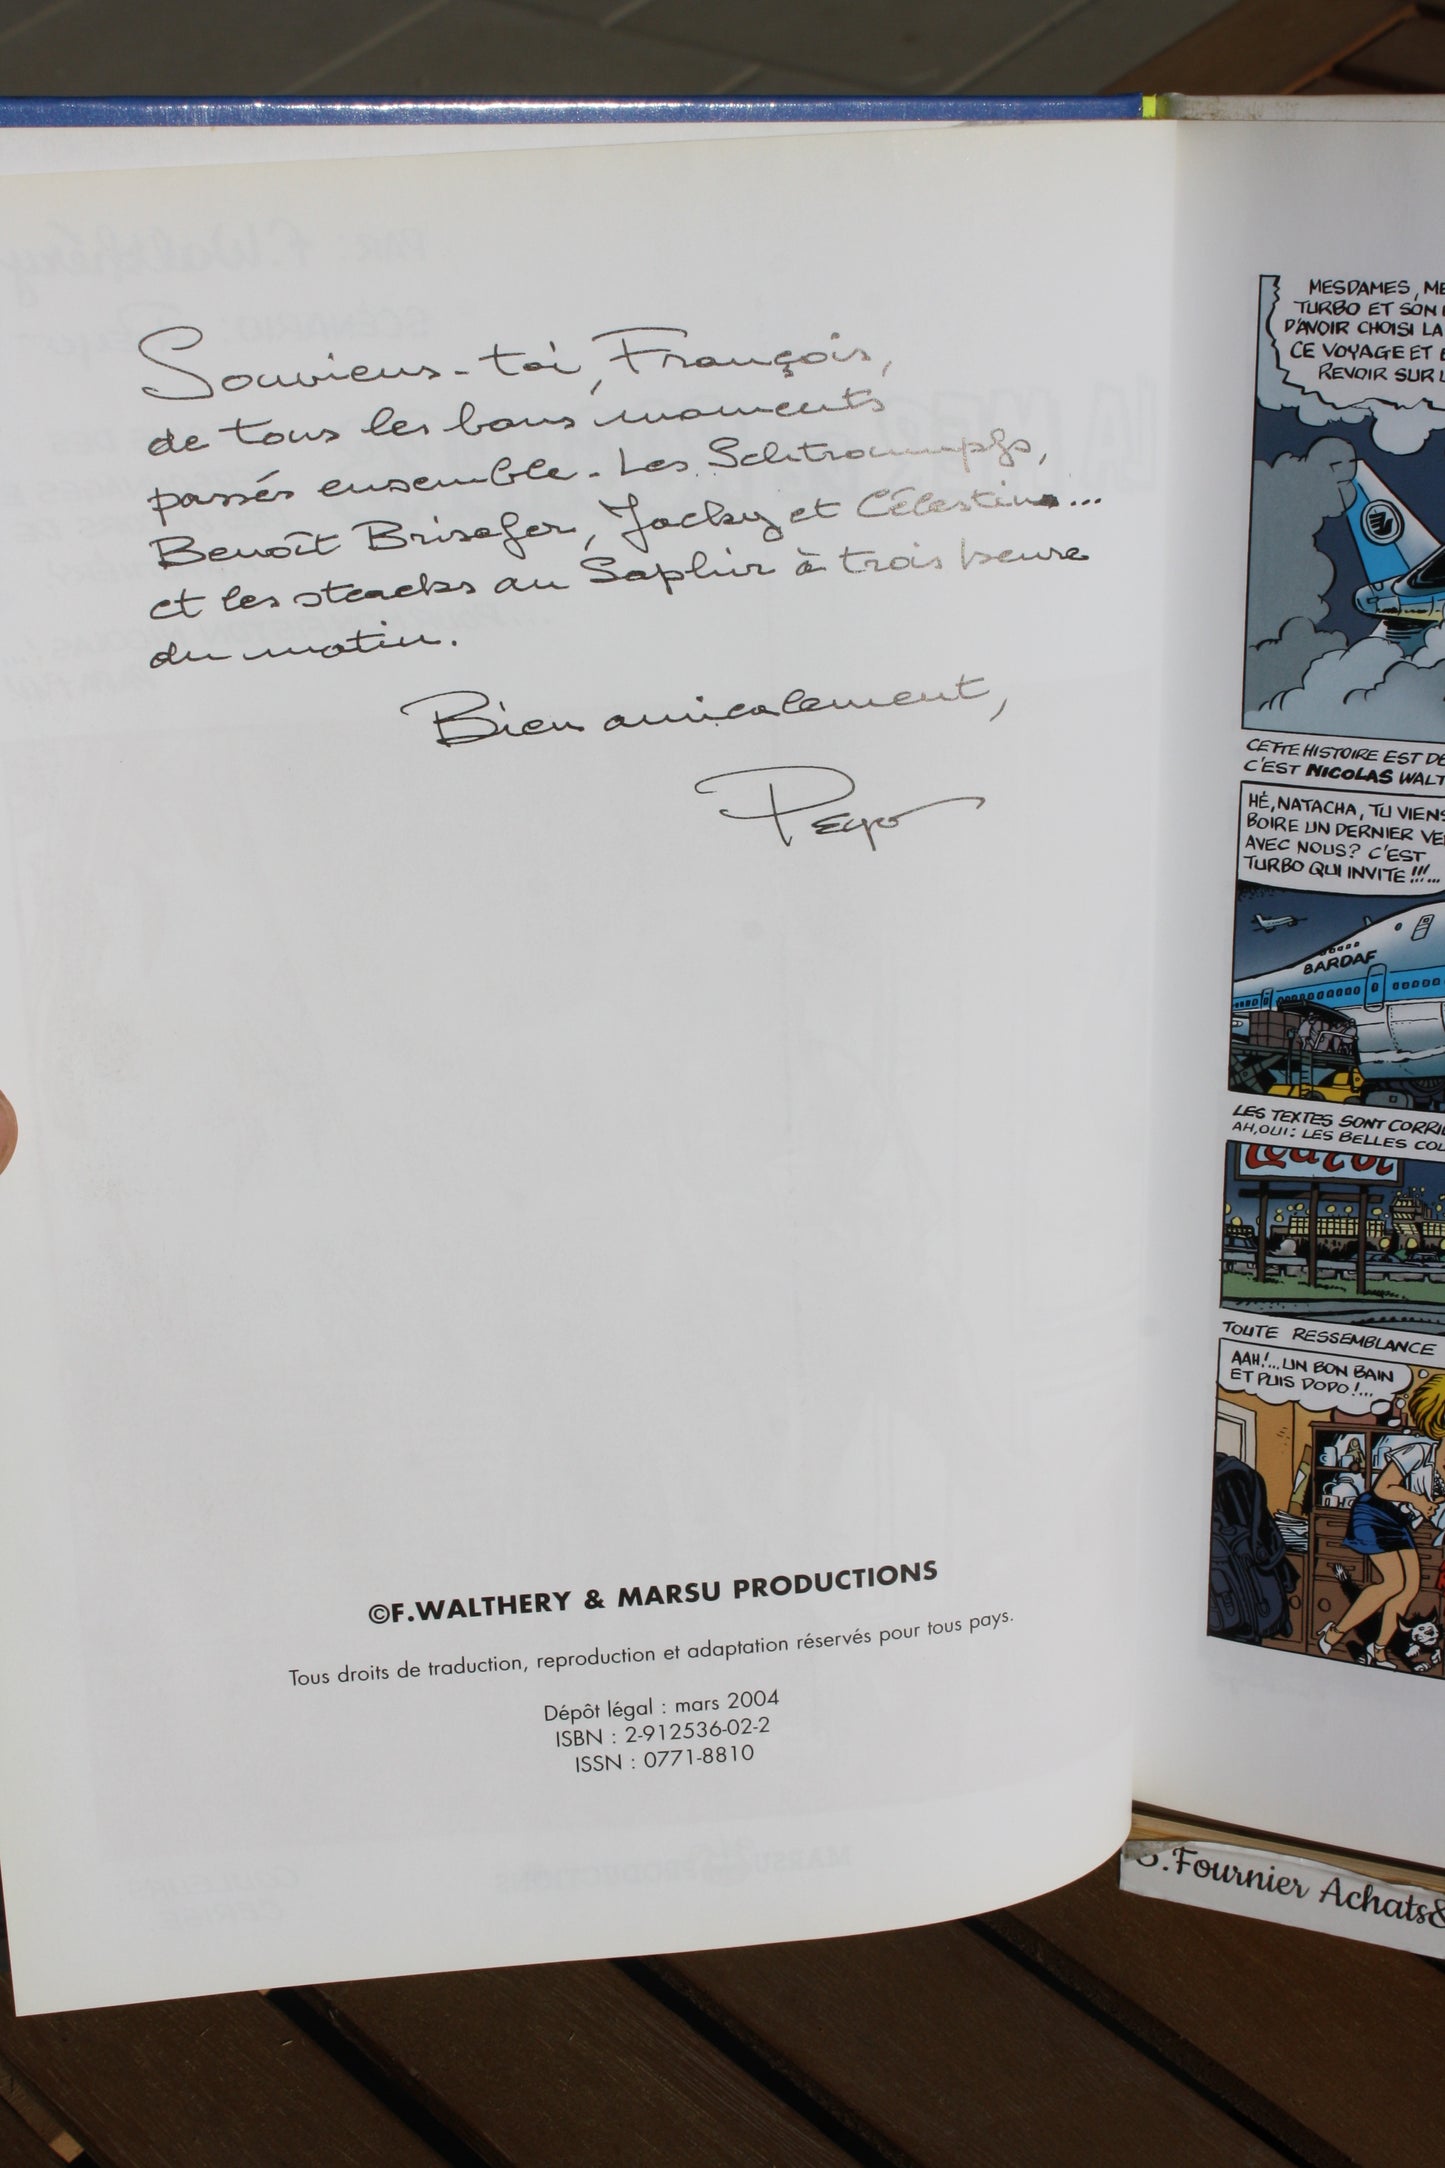 Souviens-toi, François,
de tous les bons moments
passés ensemble. Les Schtroumpfs,
Benoît Brisefer, Jacky et Célestin...
et les steacks au Saphir à trois heure
du matin.
Bien amicalement,
Peyo
©F.WALTHERY & MARSU PRODUCTIONS
Tous droits de traduction, reproduction et adaptation réservés pour tous pays.
Dépôt légal : mars 2004
ISBN : 2-912536-02-2
ISSN : 0771-8810
MESDAMES, ME
TURBO ET SON
D'AVOIR CHOISI LA
CE VOYAGE ET
REVOIR SUR L
CETTE HISTOIRE EST DÉ
C'EST NICOLAS WALT
HÉ, NATACHA, TU VIENS
BOIRE UN DERNIER VE
AVEC NOUS? C'EST
TURBO QUI INVITE !!!...
BARDAF
LES TEXTES SONT CORRI
AH, OUI : LES BELLES COL
TOUTE RESSEMBLANCE
AAH!... UN BON BAIN
ET PUIS DODO !...
S.Fournier Achats&